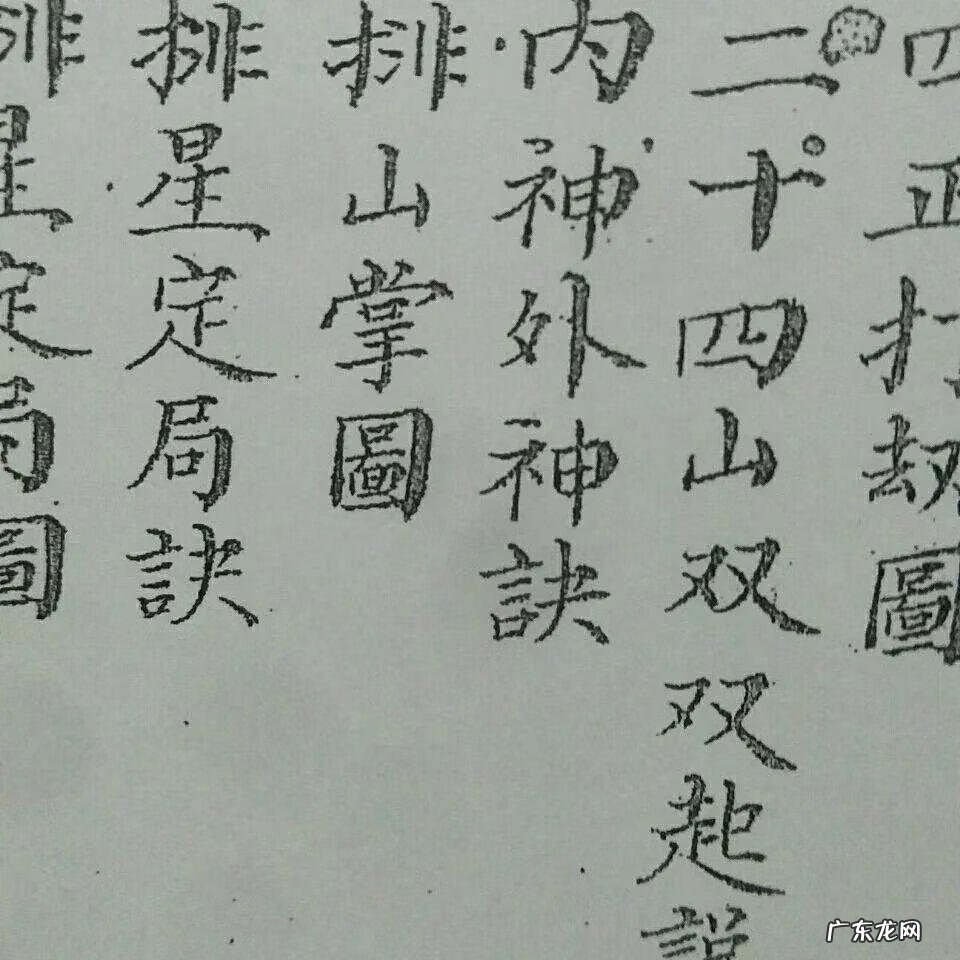 四正打劫圖
二十四山双双起説
内神外神訣
排山掌圖
排星定局訣
排星定局圖
广东龙网